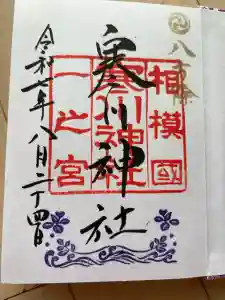 八方除
相模國
寒川神社
寒川神社
一之宮
令和年八月二十四日